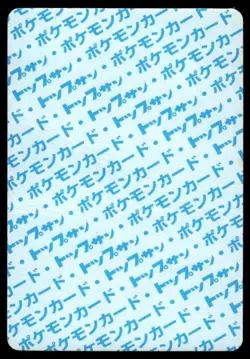 ポケモンカード・トップサン
トップサン・ポケモンカード
ポケモンカード・トップサン
トップサン・ポケモンカード
ポケモンカード・トップサン
トップサン・ポケモンカード
ポケモンカード・トップサン
トップサン・ポケモンカード
ポケモンカード・トップサン
トップサン・ポケモンカード
ポケモンカード・トップサン